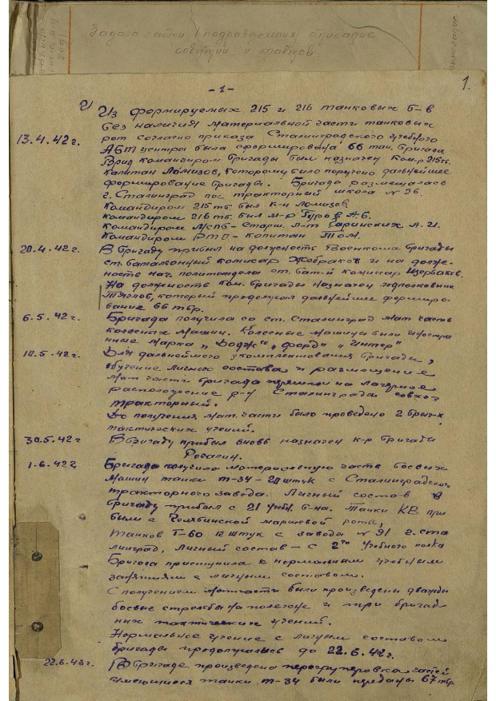 Задача части и подразделения, описание
событий и фактов
- 1 -
1.
Из формируемых 215 и 216 танковых б-в
без наличия материальной части танковых
рот согласно приказа Сталинградского учебного
АБТ центра была сформирована 66 тан. бригада
Врид командиром бригады был назначен ком-р 215 тб.
капитан Ломизов, которому было поручено дальнейшее
формирование бригады. Бригада размещалась
г. Сталинград пос. тракторный школа № 26
Командиром 215 тб был к-н Ломизов
Командиром 216 тб был м-р Гуров А.Б.
Командиром МСПБ - старш. л-т Саринских А.И.
Командиром РТП - капитан Толм.
20.4.42г. В бригаду прибыл на должность Военкома бригады
ст. батальонный комиссар Жебраков и на долж-
ность нач. политотдела ст. бат-й комисар Щербаков.
На должность ком. бригады назначен подполковник
Тяглов, который продолжал дальнейшее формиро-
вание 66 тбр.
6.5.42г. Бригада получила со ст. Сталинград мат. часть
колесных машин. Колесные машины были иностра
нные марка "Додж", "Форд" и "Интер"
10.5.42г. Для дальнейшего укомплектования бригады,
обучение личного состава и размещение
мат. части бригада перешла на лагерное
расположение р-н Сталинграда совхоз
тракторный.
До получения мат. части было проведено 2 бриг-х
тактических учений.
30.5.42г В бригаду прибыл вновь назначен к-р бригады
Росагин.
1.6.42г Бригада получила материальную часть боевых
машин танки Т-34 - штук с Сталинградского
тракторного завода. Личный состав в
бригаду прибыл с 21 учеб. б-на. Танки КВ при
были с Челябинской маршевой ротой,
Танков Т-60 штук с завода № 91 г. Ста
линград, личный состав - с 2го Учебного полка
Бригада приступила к нормальным учебным
занятиям с личным составом.
С получением мат. части были произведены дважды
боевые стрельбы на полегоне и три бригад-
ных тактических учений.
Нормальное учение с личным составом
бригады продолжалось до 22.6.42г.
22.6.42г. В бригаде произведена перегруперовка частей
Имеющиеся танки Т-34 были переданы 67 тбр.
13.4.42г.